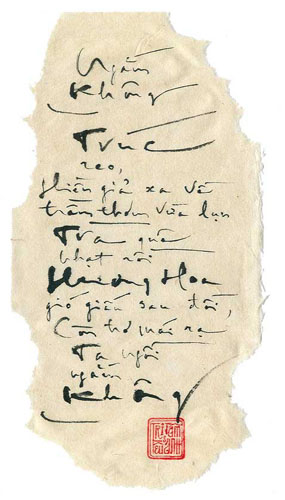 Ngắm
Không
Trúc
reo,
thiền giả xa về
trầm thơm vừa lụn
Trà quá
nhạt rồi
Hương Hoa
gió giấu sau đồi,
Còn trơ mái rạ
Ta ngồi
ngắm
Không